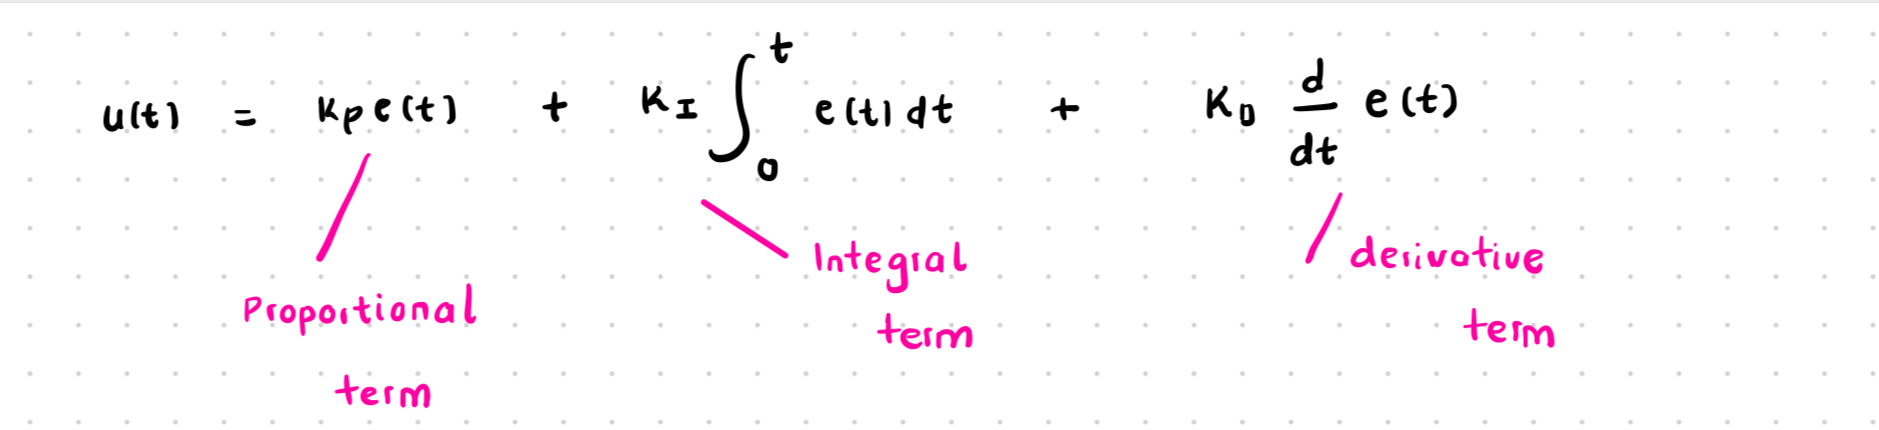 u(t) = KP e(t) + KI ∫₀ᵗ e(t) dt + KD d/dt e(t)
Proportional term
Integral term
derivative term